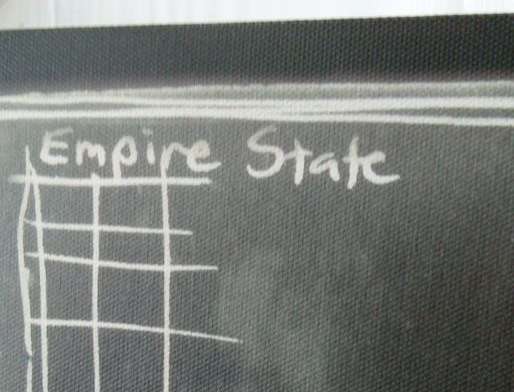 Empire State